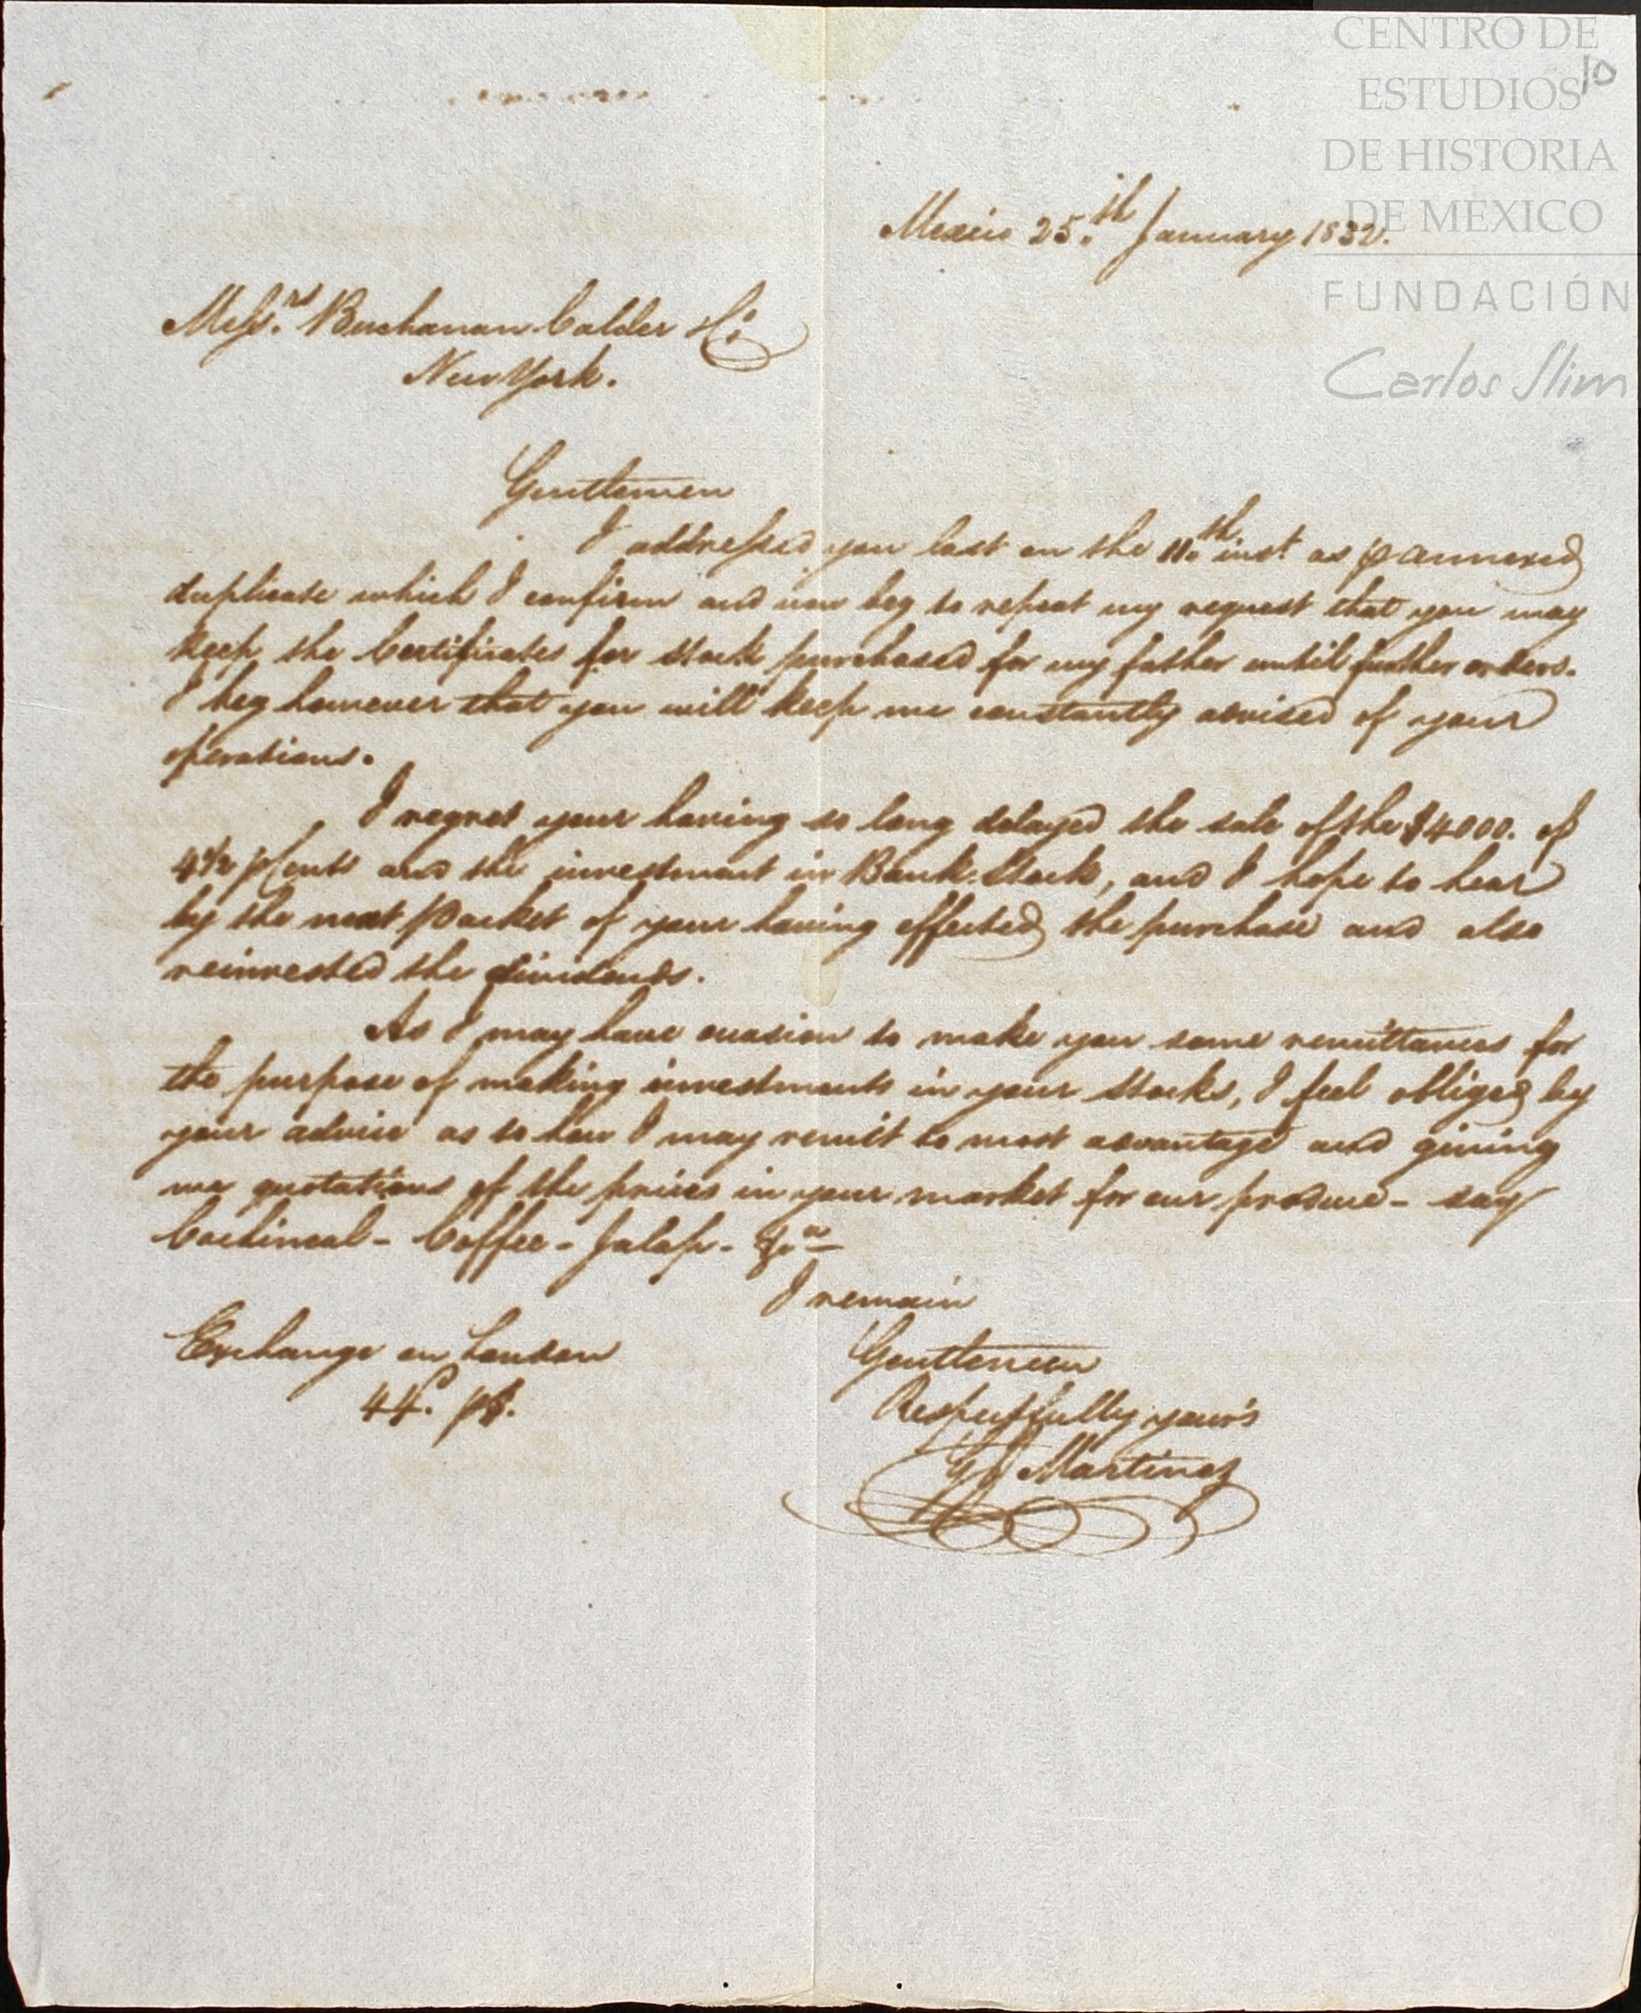 CENTRO DE
ESTUDIOS
10
DE HISTORIA
DE MEXICO
FUNDACIÓN
Carlos Slim
Mexico 25.th January 1832.
Messrs. Buchanan Calder & Co
New York.
Gentlemen
I addressed you last on the 11.th inst as p annexed
duplicate which I confirm and now beg to repeat my request that you may
keep the Certificates for Stock purchased for my father until further orders.
I beg however that you will keep me constantly advised of your
operations.
I regret your having so long delayed the sale of the $4000. of
4½ p Cents and the investment in Bank Stock, and I hope to hear
by the next packet of your having effected the purchase and also
reinvested the dividends.
As I may have occasion to make you some remittances for
the purpose of making investments in your Stocks, I feel obliged by
your advice as to how I may remit to most advantage and giving
me quotations of the prices in your market for our produce - say
Cochineal - Coffee - Jalap - &ca
I remain
Exchange on London
Gentlemen
44.d p$.
Respectfully your's
Martinez